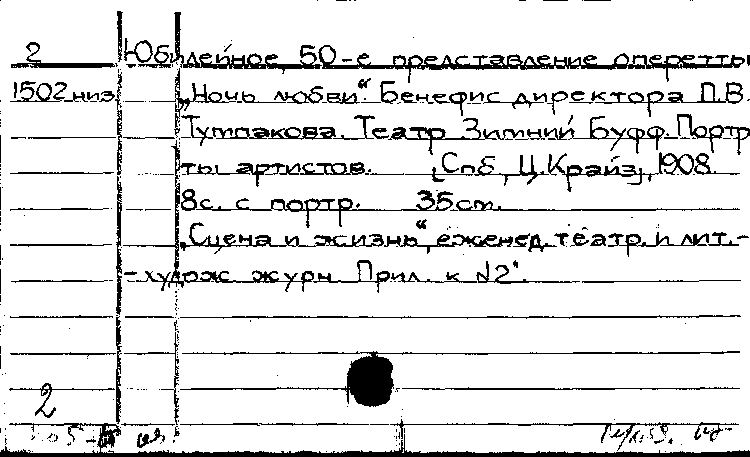 2 Юбилейное, 50-е представление оперетты
1502 низ „Ночь любви“. Бенефис директора П.В.
Тумпакова. Театр Зимний Буфф. Портр
ты артистов. [Спб, Ц. Крайз], 1908.
8с. с портр. 35см.
„Сцена и жизнь“, еженед. театр. и лит.-
-худож. журн. Прил. к №2.
2